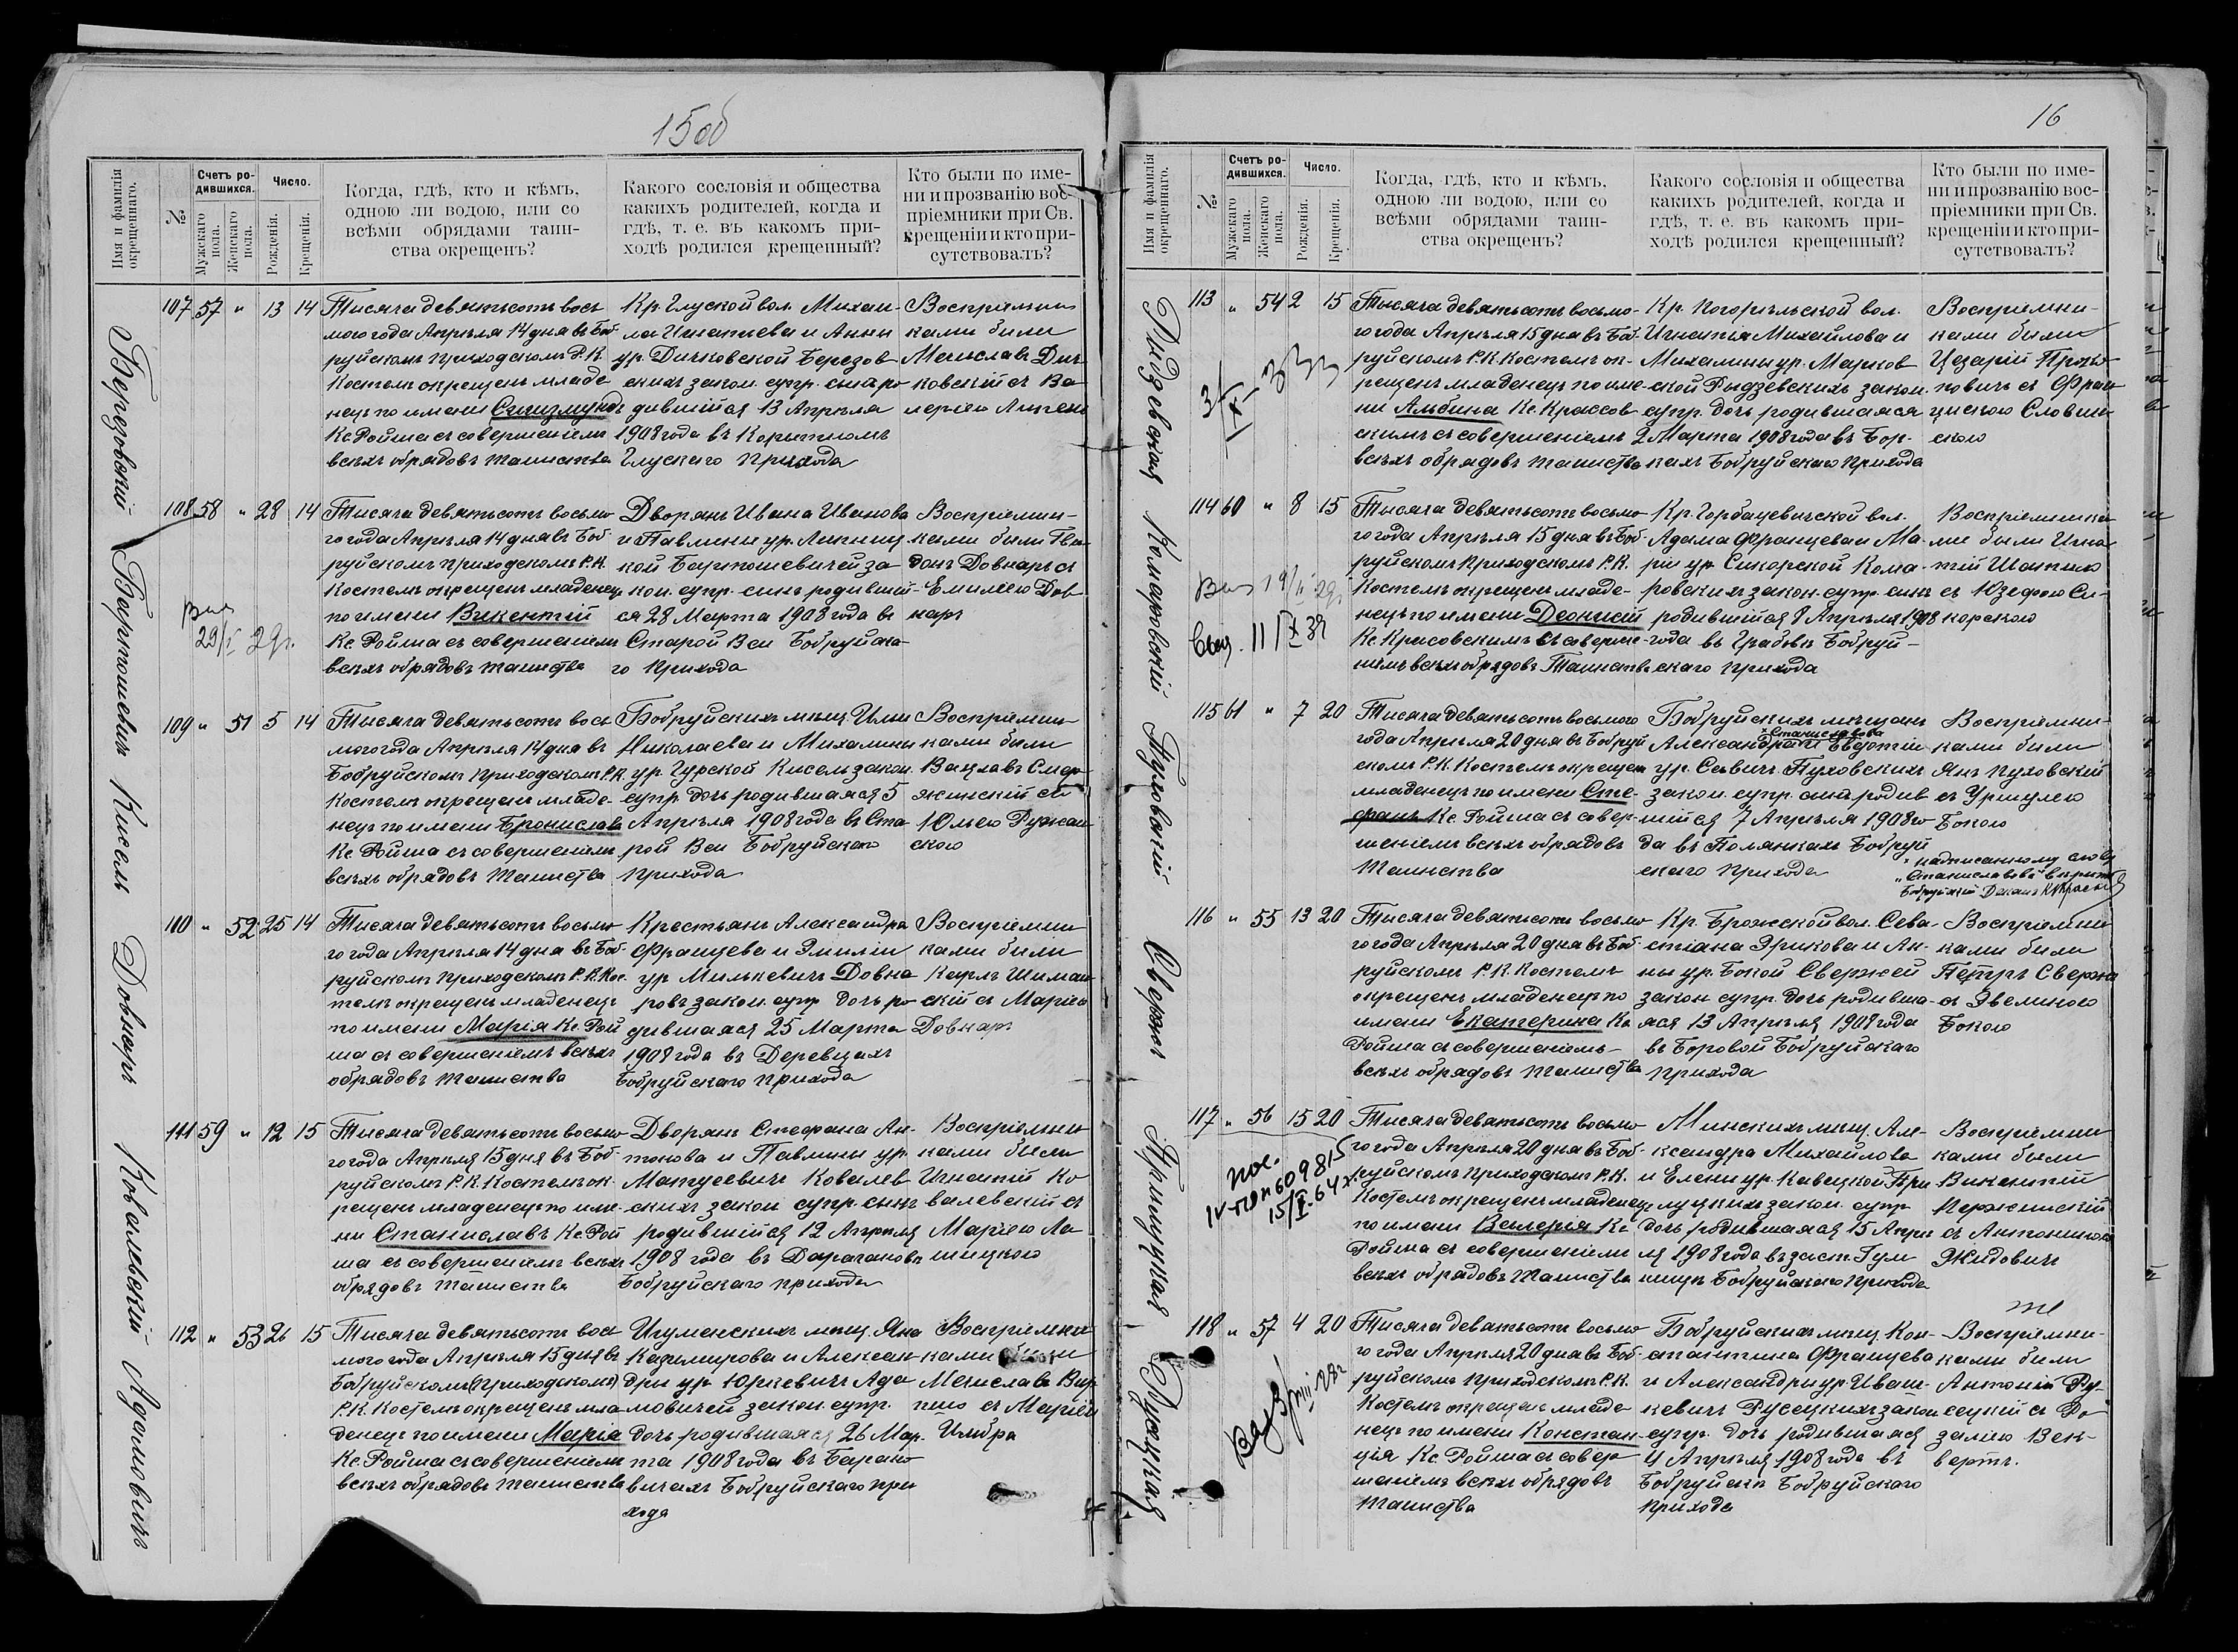 15 об
Имя и фамилія окрещеннаго.
№
Счетъ ро-
дившихся.
Мужскаго пола.
Женскаго пола.
Число.
Рожденія.
Крещенія.
Когда, гдѣ, кто и кѣмъ,
одною ли водою, или со
всѣми обрядами таин-
ства окрещенъ?
Какого сословія и общества
какихъ родителей, когда и
гдѣ, т. е. въ какомъ при-
ходѣ родился крещенный?
Кто были по име-
ни и прозванію вос-
пріемники при Св.
крещеніи и кто при-
сутствовалъ?
Березовскій
107 57 " 13 14
Тысяча девятьсотъ вось
мого года Апрѣля 14 дня въ Боб
руйскомъ приходскомъ Р. К.
Костелѣ окрещенъ младе
нецъ по имени Сигизмундъ
Кс. Ройша съ совершеніемъ
всѣхъ обрядовъ таинства
Кр. Глуской вол. Михаи-
ла Игнатьева и Анны
ур. Дичковской Березов
скихъ закон. супр. сынъ ро
дившійся 13 Апрѣля
1908 года въ Корытномъ
Глускаго прихода
Воспріемни
ками были
Мечиславъ Дич
ковскій съ Ва
леріею
Бартошевичъ
108 58 " 28 14
Віа
29/V 29г.
Тысяча девятьсотъ восьмо
го года Апрѣля 14 дня въ Боб
руйскомъ приходскомъ Р. К.
Костелѣ окрещенъ младенец
по имени Викентій
Кс. Ройша съ совершеніемъ
всѣхъ обрядовъ таинства
Дворянъ Ивана Иванова
и Павлины ур. Липниц
кой Бартошевичей за
кон. супр. сынъ родивший-
ся 28 Марта 1908 года въ
Старой Вси Бобруйска
го прихода
Воспріемни-
ками были
Довнаръ съ
Емиліею Дов
наръ
Кисель
109 " 51 5 14
Тысяча девятьсотъ вось
мого года Апрѣля 14 дня въ
Бобруйскомъ приходскомъ Р. К.
Костелѣ окрещенъ младе-
нецъ по имени Бронислава
Кс. Ройша съ совершеніемъ
всѣхъ обрядовъ таинства
Бобруйскихъ мѣщ. Ильи
Николаева и Михалины
ур. Гурской Кисель закон.
супр. дочь родившаяся 5
Апрѣля 1908 года въ Ста
рой Вси Бобруйскаго
прихода
Воспріемни
ками были
Вацлавъ
съ
Юльею Ружан
скою
Довнаръ
110 " 52 25 14
Тысяча девятьсотъ восьмо
го года Апрѣля 14 дня въ Боб-
руйскомъ приходскомъ Р. К. Кос-
телѣ окрещенъ младенецъ
по имени Марія Кс. Рой
ша съ совершеніемъ всѣхъ
обрядовъ таинства
Крестьянъ Александра
Францева и Эмиліи
ур. Милькевичъ Довна
ровъ закон. супр. дочь ро
дившаяся 25 Марта
1908 года въ Деревцахъ
Бобруйскаго прихода
Воспріемни
ками были
Карлъ Шиман
скій съ Маріею
Довнаръ
Ковалевскій
111 59 " 12 15
Тысяча девятьсотъ восьмо
го года Апрѣля 15 дня въ Боб-
руйскомъ Р. К. Костелѣ ок-
рещенъ младенецъ по име
ни Станиславъ Кс. Рой
ша съ совершеніемъ всѣхъ
обрядовъ таинства
Дворянъ Стефана Ан-
тонова и Павлины ур
Матусевичъ Ковалев
скихъ закон супр. сынъ
родившійся 12 Апрѣля
1908 года въ Дарагановѣ
Бобруйскаго прихода
Воспріемни
ками были
Игнатій Ко
валевскій съ
Маріею
Адамовичъ
112 " 53 26 15
Тысяча девятьсотъ вось
мого года Апрѣля 15 дня въ
Бобруйскомъ (приходскомъ)
Р. К. Костелѣ окрещенъ мла
денецъ по имени Марія
Кс. Ройша съ совершеніемъ
всѣхъ обрядовъ таинства
Игуменскихъ мѣщ. Яна
Казимирова и Алексан
дры ур Юркевичъ Ада
мовичей закон. супр.
дочь родившаяся 26 Мар-
та 1908 года въ Барано
вичахъ Бобруйскаго при
хода
Воспріемни
ками были
Мечиславъ
съ Маріею
Цимбра
16
Имя и фамилія окрещеннаго.
№
Счетъ ро-
дившихся.
Мужскаго пола.
Женскаго пола.
Число.
Рожденія.
Крещенія.
Когда, гдѣ, кто и кѣмъ,
одною ли водою, или со
всѣми обрядами таин-
ства окрещенъ?
Какого сословія и общества
какихъ родителей, когда и
гдѣ, т. е. въ какомъ при-
ходѣ родился крещенный?
Кто были по име-
ни и прозванію вос-
пріемники при Св.
крещеніи и кто при-
сутствовалъ?
Рыдзевская
113 " 54 2 15
Тысяча девятьсотъ восьмо-
го года Апрѣля 15 дня въ Боб-
руйскомъ Р. К. Костелѣ ок-
рещенъ младенецъ по име-
ни Альбина Кс. Крассов-
скимъ съ совершеніемъ
всѣхъ обрядовъ таинства
Кр. Погорѣльской вол.
Игнатія Михайлова и
Михалины ур. Марков
ской Рыдзевскихъ закон.
супр. дочь родившаяся
2 Марта 1908 года въ Бор-
кахъ Бобруйскаго прихода
Воспріемни-
ками были
Цезарій Проко
повичъ съ Фран
цискою Словин
скою
Комаровскій
114 60 " 8 15
Тысяча девятьсотъ восьмо
го года Апрѣля 15 дня въ Боб-
руйскомъ приходскомъ Р. К.
Костелѣ окрещенъ младе-
нецъ по имени Деонисій
Кс. Красовскимъ съ соверше-
ніемъ всѣхъ обрядовъ Таинства
Кр. Горбацевичской вол.
Адама Францева и Ма-
ріи ур Сикорской Кома-
ровскихъ закон. супр. сынъ
родившійся 8 Апрѣля 1908
года въ Грабовѣ Бобруй-
скаго прихода
Воспріемника
ми были Игна
тій
съ Юзефою Си-
корскою
Пуховскій
115 61 " 7 20
Тысяча девятьсотъ восьмого
года Апрѣля 20 дня въ Бобруй
скомъ Р. К. Костелѣ окрещенъ
младенецъ по имени Сте-
фанъ Кс. Ройша съ совер-
шеніемъ всѣхъ обрядовъ
Таинства
Бобруйскихъ мѣщанъ
"Станиславова
Александра и Евдотіи
ур. Севичъ Пуховскихъ
закон. супр. сынъ родив
шійся 7 Апрѣля 1908 го
да въ Полянкахъ Бобруй
скаго прихода
Воспріемни-
ками были
Янъ Пуховскій
съ Уршулею
Бокою
надписанному слову
"Станиславова"
Бобруйскій Деканъ
Свержъ
116 " 55 13 20
Тысяча девятьсотъ восьмо
го года Апрѣля 20 дня въ Боб-
руйскомъ Р. К. Костелѣ
окрещенъ младенецъ по
имени Екатерина Кс
Ройша съ совершеніемъ
всѣхъ обрядовъ таинства
Кр. Брожской вол. Сева-
стіана Эрикова и Ан-
ны ур. Бокой Свержей
закон супр. дочь родивша-
яся 13 Апрѣля 1908 года
въ Боровой Бобруйскаго
прихода
Воспріемни
ками были
Петръ Свержъ
съ Эвелиною
Бокою
117 " 56 15 20
15/X 64
Тысяча девятьсотъ восьмо
го года Апрѣля 20 дня въ Боб-
руйскомъ приходскомъ Р. К.
Костелѣ окрещенъ младенец
по имени Валерія Кс
Ройша съ совершеніемъ
всѣхъ обрядовъ таинства
Минскихъ мѣщ. Але-
ксандра Михайлова
и Елены ур. Кавецкой При
луцкихъ закон. супр
дочь родившаяся 15 Апрѣ
ля 1908 года въ заст.
Бобруйскаго прихода
Воспріемни
ками были
Викентій
съ Антониною
Жидовичъ
118 " 57 4 20
Тысяча девятьсотъ восьмо
го года Апрѣля 20 дня въ Боб-
руйскомъ приходскомъ Р. К.
Костелѣ окрещенъ младе
нецъ по имени Констан-
ція Кс Ройша съ совер
шеніемъ всѣхъ обрядовъ
таинства
Бобруйскихъ мѣщ. Кон-
стантина Францева
и Александры ур. Иваш-
кевичъ Русецкихъ закон
супр. дочь родившаяся
4 Апрѣля 1908 года въ
Бобруйскѣ Бобруйскаго
прихода
Воспріемни-
ками были
Антоній Ру-
сецкій съ Ро
заліею Вен-
вертъ.